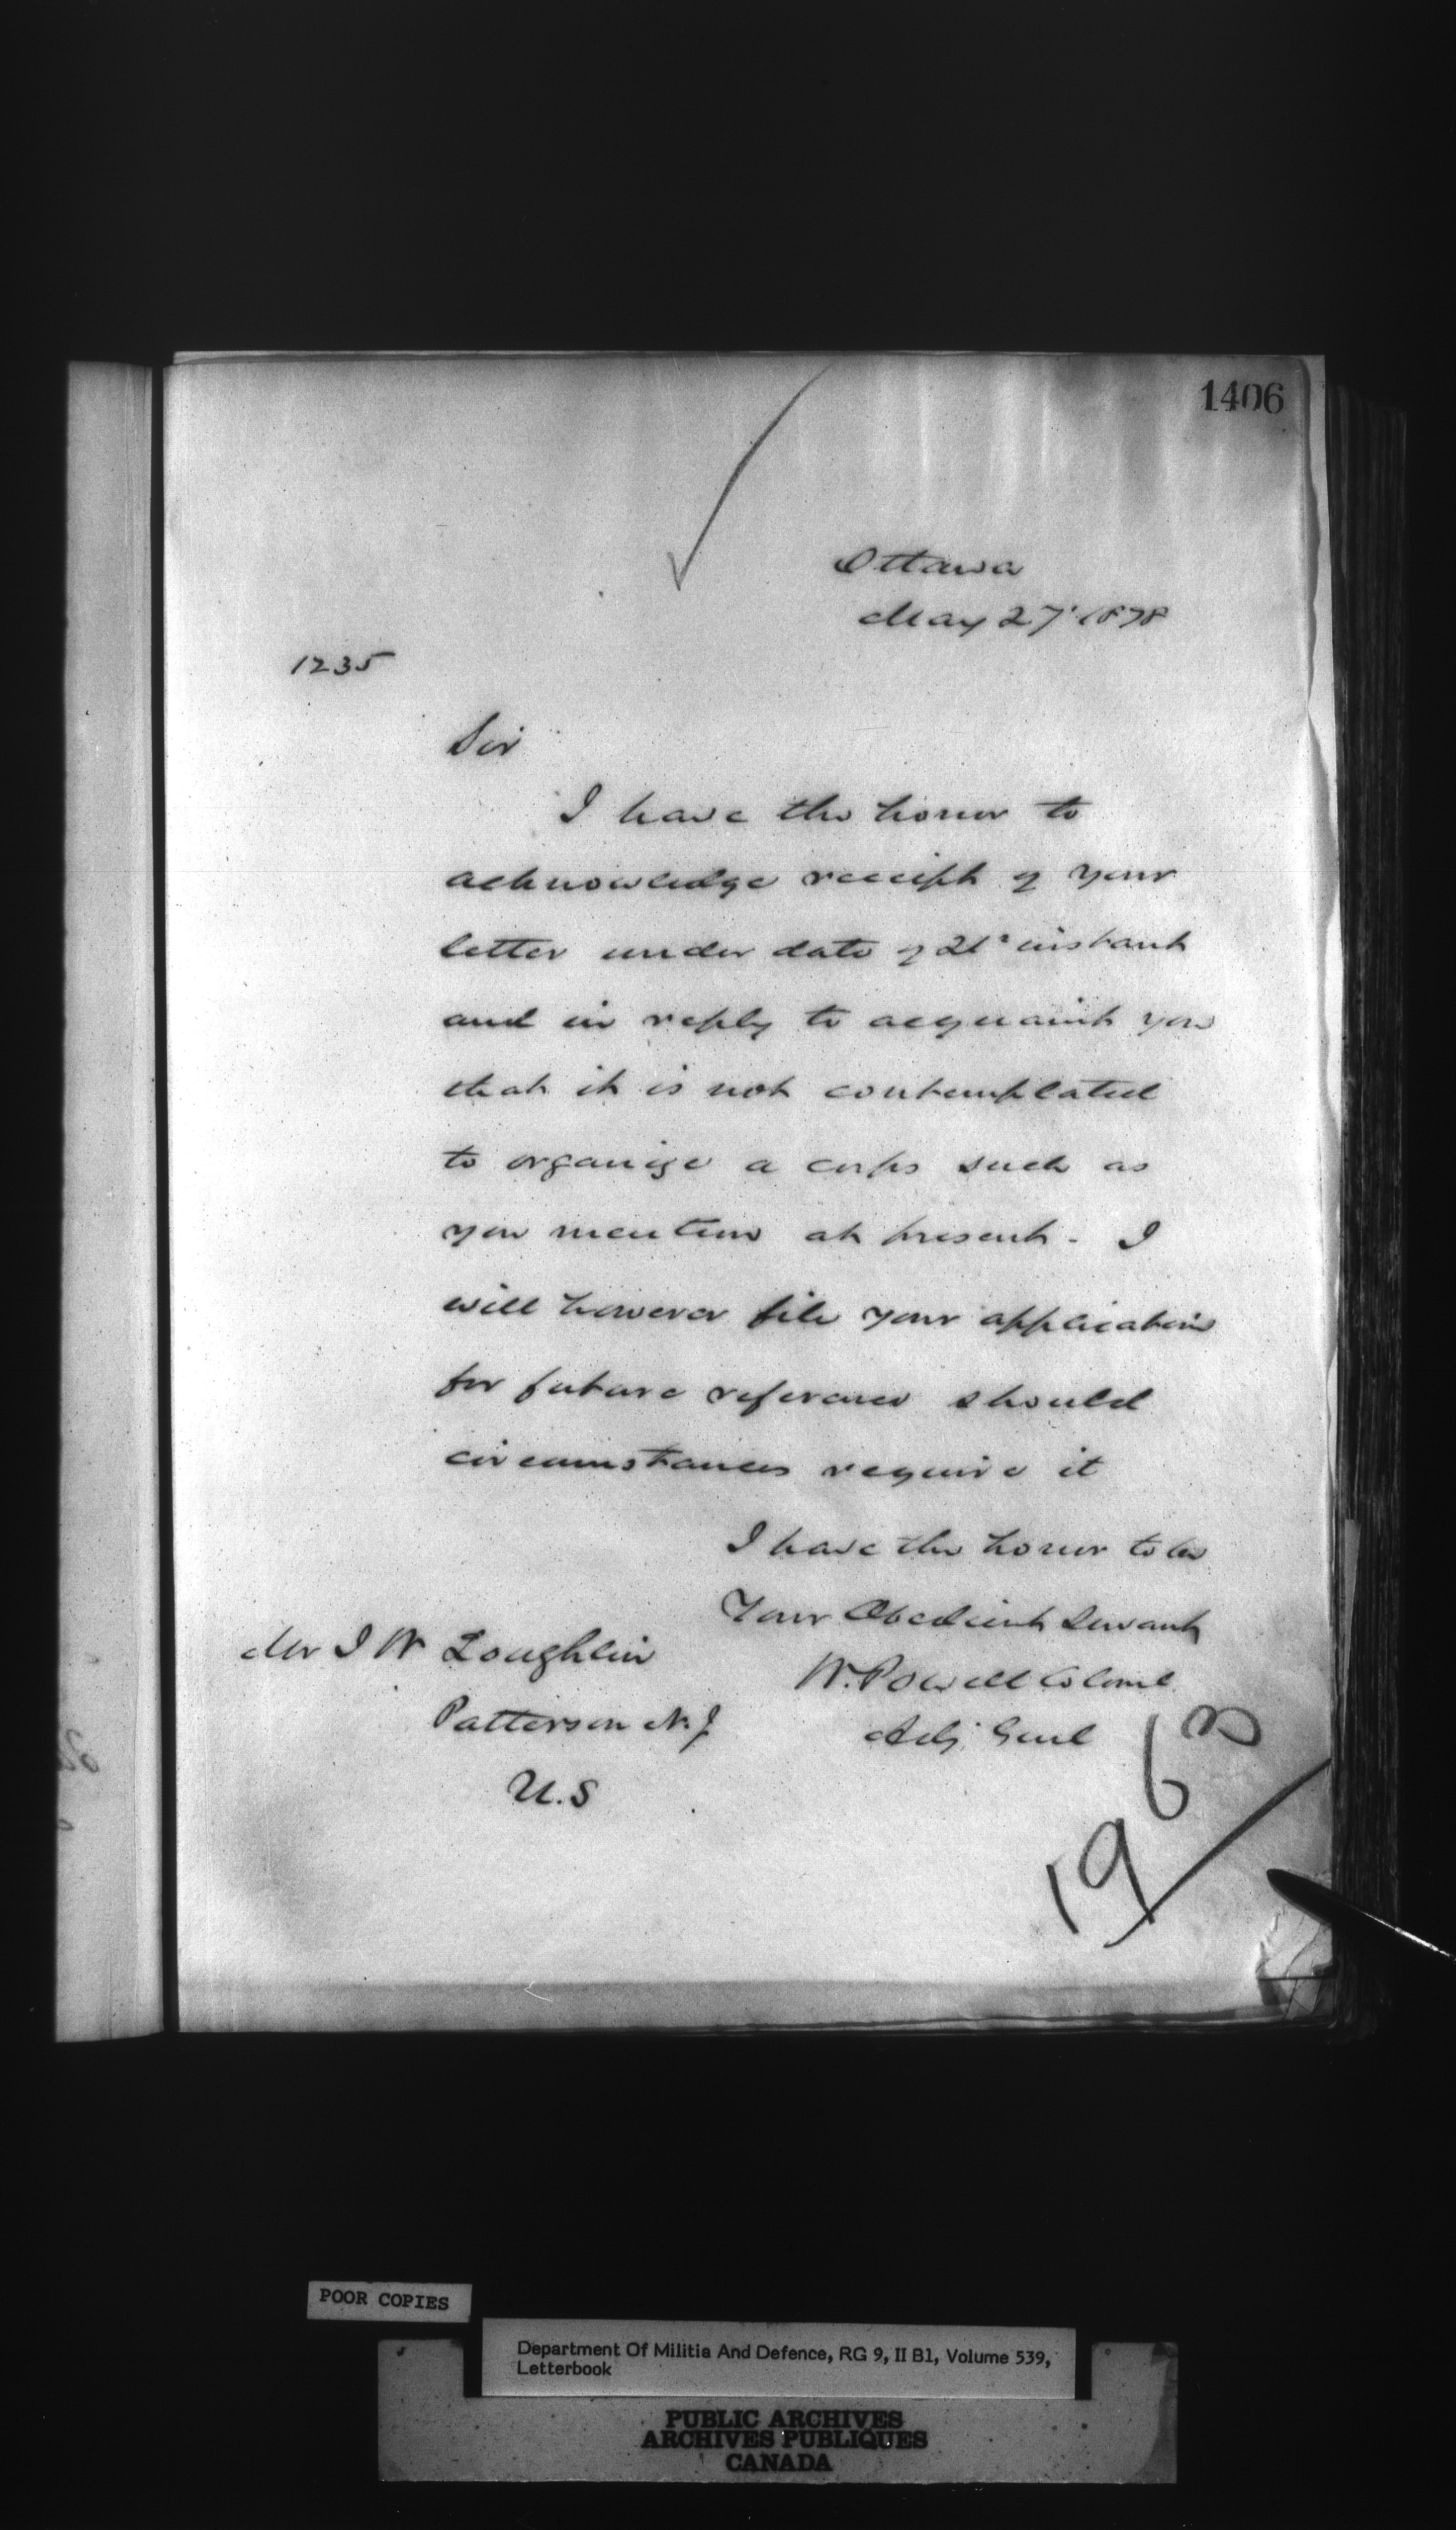 1406
Ottawa
May 27' 1878
1235
Sir
I have the honor to
acknowledge receipt of your
letter under date of 21st instant
and in reply to acquaint you
that it is not contemplated
to organize a corps such as
you mention at present. I
will however file your application
for future reference should
circumstances require it
I have the honor to be
Your Obedient Servant
W. Powell Colonel
Adj. Genl
Mr J W Loughlin
Patterson N.J
U.S
19
POOR COPIES
Department Of Militia And Defence, RG 9, II B1, Volume 539,
Letterbook
PUBLIC ARCHIVES
ARCHIVES PUBLIQUES
CANADA